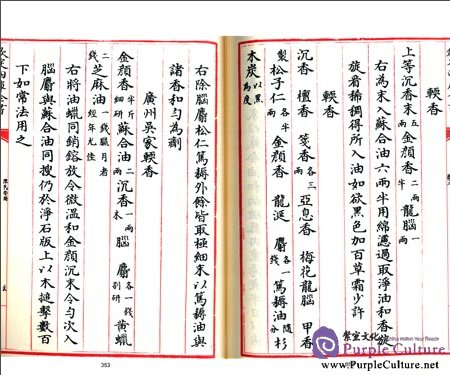 輭香
上等沉香末五兩 金顔香二兩半 龍腦一兩
右為末入蘇合油六兩半用綿濾過取淨油和香旋
旋看稀稠得所入油如欲黑色加百草霜少許
輭香
沉香 檀香 箋香各三兩 亞息香 梅花龍腦 甲香
製松子仁各半兩 金顔香 龍涎 麝各一錢 篤耨油隨分 杉
木炭以黑為度
右除腦麝松仁篤耨外餘皆取極細末以篤耨油與
諸香和匀為劑
廣州吳家輭香
金顔香半斤細研 蘇合油二兩 沉香一兩末 腦 麝各一錢别研 黄蠟
二錢 芝麻油一錢臘月者經年尤佳
右將油蠟同銷鎔放令微温和金顔沉末令匀次入
腦麝與蘇合油同搜仍於淨石版上以木搥擊數百
下如常法用之
陳氏香譜
353
紫宸文化
Purple Culture
www.PurpleCulture.net